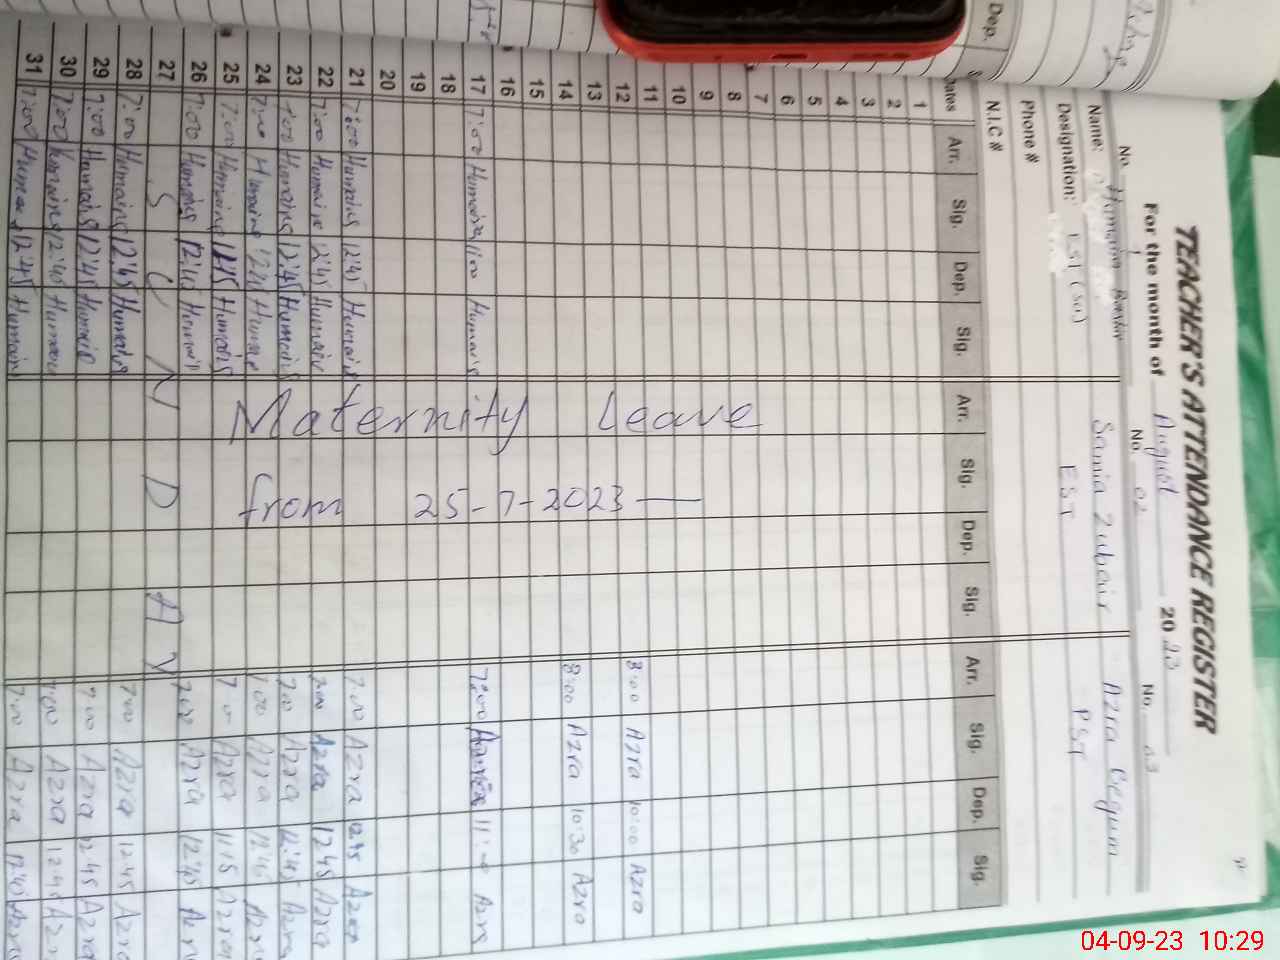 TEACHER'S ATTENDANCE REGISTER
For the month of August 2023
No. 1 No. 02 No. 03
Name: Humaira Samia Zubair Azra Begum
Designation: EST EST PST
Phone #
N.I.C #
Dates Arr. Sig. Dep. Sig. Arr. Sig. Dep. Sig. Arr. Sig. Dep. Sig.
1
2
3
4
5
6
7
8
9
10
11
12 8:00 Azra 10:00 Azra
13
14 8:00 Azra 10:30 Azra
15
16
17 7:00 Humaira 11:00 Humaira 7:00 11:00 Azra
18
19
20
21 7:00 Humaira 12:45 Humaira 7:00 Azra 12:45 Azra
22 7:00 Humaira 12:45 Humaira 7:00 Azra 12:45 Azra
23 7:00 Humaira 12:45 Humaira 7:00 Azra 12:45 Azra
24 7:00 Humaira Humaira 7:00 Azra 12:45 Azra
25 7:00 Humaira 11:15 Humaira 7:00 Azra 11:15 Azra
26 7:00 Humaira Humaira 7:00 Azra 12:45 Azra
27 SUNDAY
28 7:00 Humaira 12:45 Humaira 7:00 Azra 12:45 Azra
29 7:00 Humaira 12:45 Humaira 7:00 Azra 12:45 Azra
30 7:00 Humaira 12:45 Humaira 7:00 Azra 12:45 Azra
31 7:00 Humaira 12:45 Humaira 7:00 Azra 12:45 Azra
Maternity Leave
from 25-7-2023
Dep.
04-09-23 10:29